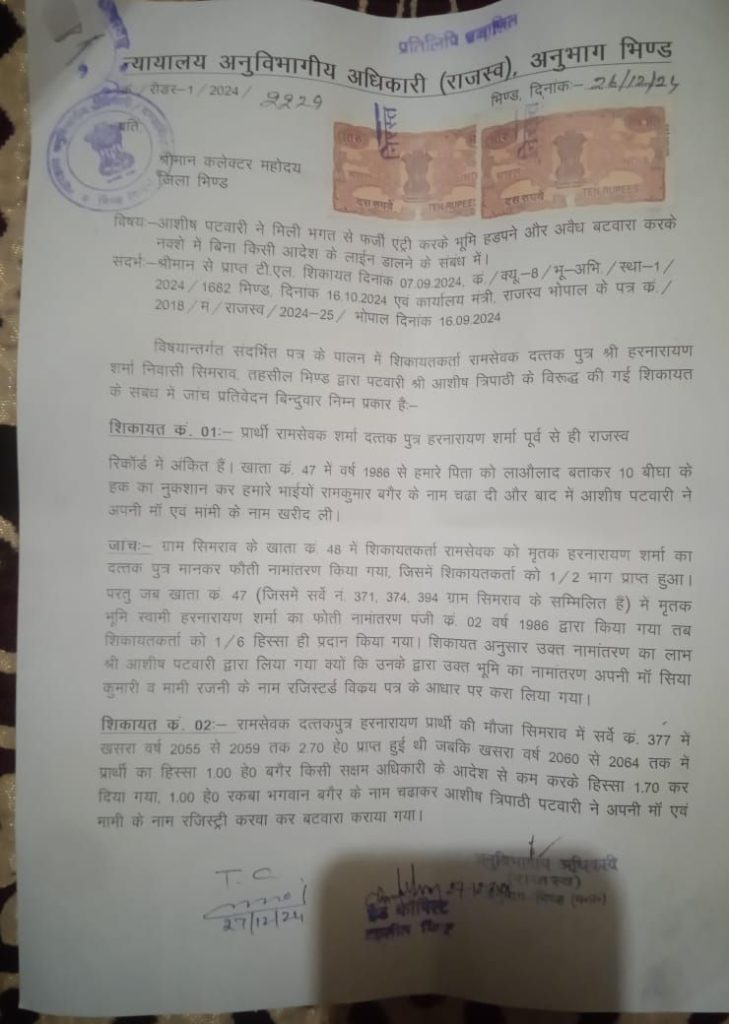 प्रतिलिपि प्रमाणित
न्यायालय अनुविभागीय अधिकारी (राजस्व), अनुभाग भिण्ड
/ रीडर-1 / 2024 / 2229
भिण्ड, दिनांकः- 26/12/24
निरस्त
प्रति
श्रीमान कलेक्टर महोदय
जिला भिण्ड
दस रुपये TEN RUPEES
दस रुपये TEN RUPEES
विषयः-आशीष पटवारी ने मिली भगत से फर्जी एट्री करके भूमि हडपने और अवैध बटवारा करके
नक्शे में बिना किसी आदेश के लाईन डालने के संबध में।
संदर्भः-श्रीमान से प्राप्त टी.एल. शिकायत दिनांक 07.09.2024, कं./क्यू-8/भू-अभि./स्था-1/
2024/1682 भिण्ड, दिनांक 16.10.2024 एवं कार्यालय मंत्री, राजस्व भोपाल के पत्र कं./
2018/म/राजस्व/2024-25/ भोपाल दिनांक 16.09.2024
विषयान्तर्गत संदर्भित पत्र के पालन में शिकायतकर्ता रामसेवक दत्तक पुत्र श्री हरनारायण
शर्मा निवासी सिमराव, तहसील भिण्ड द्वारा पटवारी श्री आशीष त्रिपाठी के विरूद्ध की गई शिकायत
के सबध में जाच प्रतिवेदन बिन्दुवार निम्न प्रकार हैः-
शिकायत कं. 01ः- प्रार्थी रामसेवक शर्मा दत्तक पुत्र हरनारायण शर्मा पूर्व से ही राजस्व
रिकॉर्ड में अंकित हैं। खाता कं. 47 में वर्ष 1986 से हमारे पिता को लाऔलाद बताकर 10 बीघा के
हक का नुकशान कर हमारे भाईयों रामकुमार बगैर के नाम चढा दी और बाद में आशीष पटवारी ने
अपनी मॉ एवं मांमी के नाम खरीद ली।
जाचः- ग्राम सिमराव के खाता कं. 48 में शिकायतकर्ता रामसेवक को मृतक हरनारायण शर्मा का
दत्तक पुत्र मानकर फौती नामांतरण किया गया, जिसमें शिकायतकर्ता को 1/2 भाग प्राप्त हुआ।
परतु जब खाता कं. 47 (जिसमें सर्वे नं. 371, 374, 394 ग्राम सिमराव के सम्मिलित हैं) में मृतक
भूमि स्वामी हरनारायण शर्मा का फोती नामांतरण पजी कं. 02 वर्ष 1986 द्वारा किया गया तब
शिकायतकर्ता को 1/6 हिस्सा ही प्रदान किया गया। शिकायत अनुसार उक्त नामांतरण का लाभ
श्री आशीष पटवारी द्वारा लिया गया क्यों कि उनके द्वारा उक्त भूमि का नामांतरण अपनी मॉ सिया
कुमारी व मामी रजनी के नाम रजिस्टर्ड विक्रय पत्र के आधार पर करा लिया गया।
शिकायत कं. 02ः- रामसेवक दत्तकपुत्र हरनारायण प्रार्थी की मौजा सिमराव में सर्वे कं. 377 में
खसरा वर्ष 2055 से 2059 तक 2.70 हे0 प्राप्त हुई थी जबकि खसरा वर्ष 2060 से 2064 तक में
प्रार्थी का हिस्सा 1.00 हे0 बगैर किसी सक्षम अधिकारी के आदेश से कम करके हिस्सा 1.70 कर
दिया गया, 1.00 हे0 रकबा भगवान बगैर के नाम चढाकर आशीष त्रिपाठी पटवारी ने अपनी मॉ एवं
मामी के नाम रजिस्ट्री करवा कर बटवारा कराया गया।
अनुविभागीय अधिकारी
(राजस्व)
T.C
27/12/24
हैड कॉपिस्ट